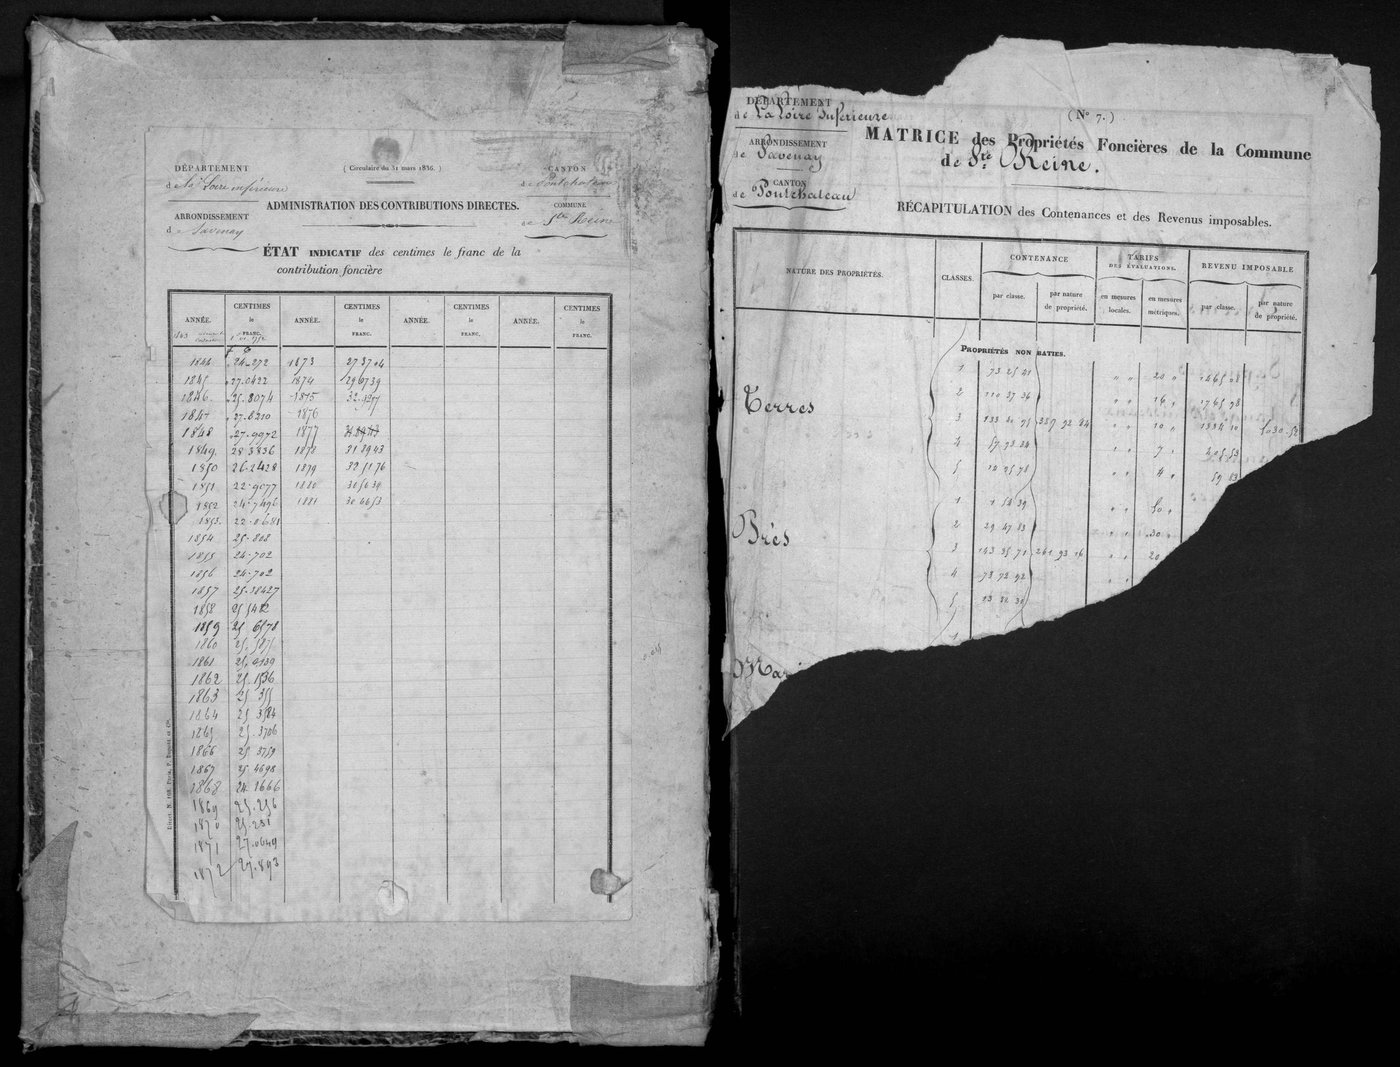 DÉPARTEMENT
de la Loire inférieure
ARRONDISSEMENT
de Savenay
( Circulaire du 31 mars 1836. )
ADMINISTRATION DES CONTRIBUTIONS DIRECTES.
CANTON
de Pontchateau
COMMUNE
de Ste Reine
ÉTAT INDICATIF des centimes le franc de la
contribution foncière
ANNÉE. CENTIMES le FRANC. ANNÉE. CENTIMES le FRANC. ANNÉE. CENTIMES le FRANC. ANNÉE. CENTIMES le FRANC.
1843
1844 24.272 1873 27 3704
1845 27.0422 1874 29 6739
1846 25.8074 1875
1847 27.8210 1876
1848 27.9972 1877
1849 28 3836 1878 31 8943
1850 26.2428 1879 32 5176
1851 22.9077 1880 30 5630
1852 24.7496 1881 30 6653
1853 22.0681
1854 25.808
1855 24.702
1856 24.702
1857 25.38427
1858 25 5482
1859 25 6578
1860 25.5871
1861 25.0139
1862 25.1536
1863 25 355
1864 25 3584
1865 25.3706
1866 25 3759
1867 25.4698
1868 24.1666
1869 25.256
1870 25.251
1871 27.0649
1872 27.893
DÉPARTEMENT
de La Loire Inférieure
ARRONDISSEMENT
de Savenay
CANTON
de Pontchateau
( No 7. )
MATRICE des Propriétés Foncières de la Commune
de Ste Reine.
RÉCAPITULATION des Contenances et des Revenus imposables.
NATURE DES PROPRIÉTÉS. CLASSES. CONTENANCE TARIFS DES ÉVALUATIONS. REVENU IMPOSABLE
par classe. par nature de propriété. en mesures locales. en mesures métriques. par classe. par nature de propriété.
PROPRIÉTÉS NON BATIES.
Terres
1 73 25 41 " " 20 " 1465 08
2 110 37 36 " " 16 " 1765 78
3 133 40 75 387 92 24 " " 10 " 1334 10 5030.52
4 57 93 34 " " 7 " 405 53
5 14 95 78 " " 4 " 59 83
Prés
1 1 54 39 " " 50 "
2 29 47 83 " " 30 "
3 143 35 71 261 93 16 " " 20
4 73 72 92 " "
5 13 82 31
1
Mar